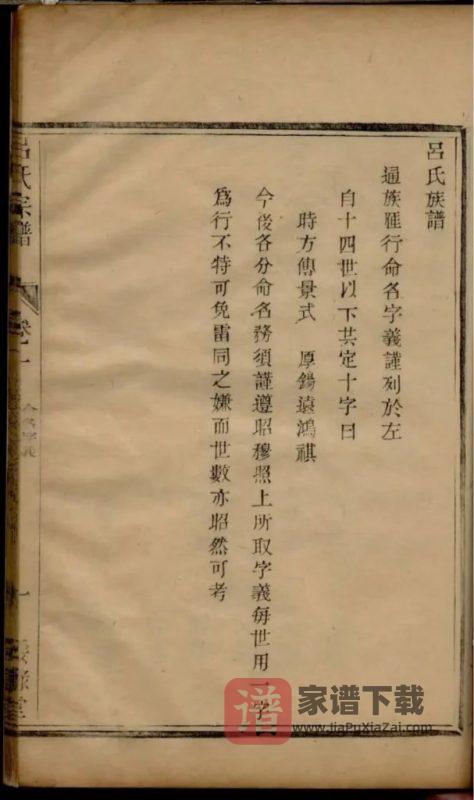 呂氏族譜
通族匯行命名字義謹列於左
自十四世以下共定十字曰
時方傳景式　厚錫遠鴻祺
今後各分命名務須謹遵昭穆照上所取字義每世用一字
為行不特可免雷同之嫌而世數亦昭然可考
呂氏宗譜
卷一
命名字義
一
譜
家谱下载
www.JiaPuXiaZai.com